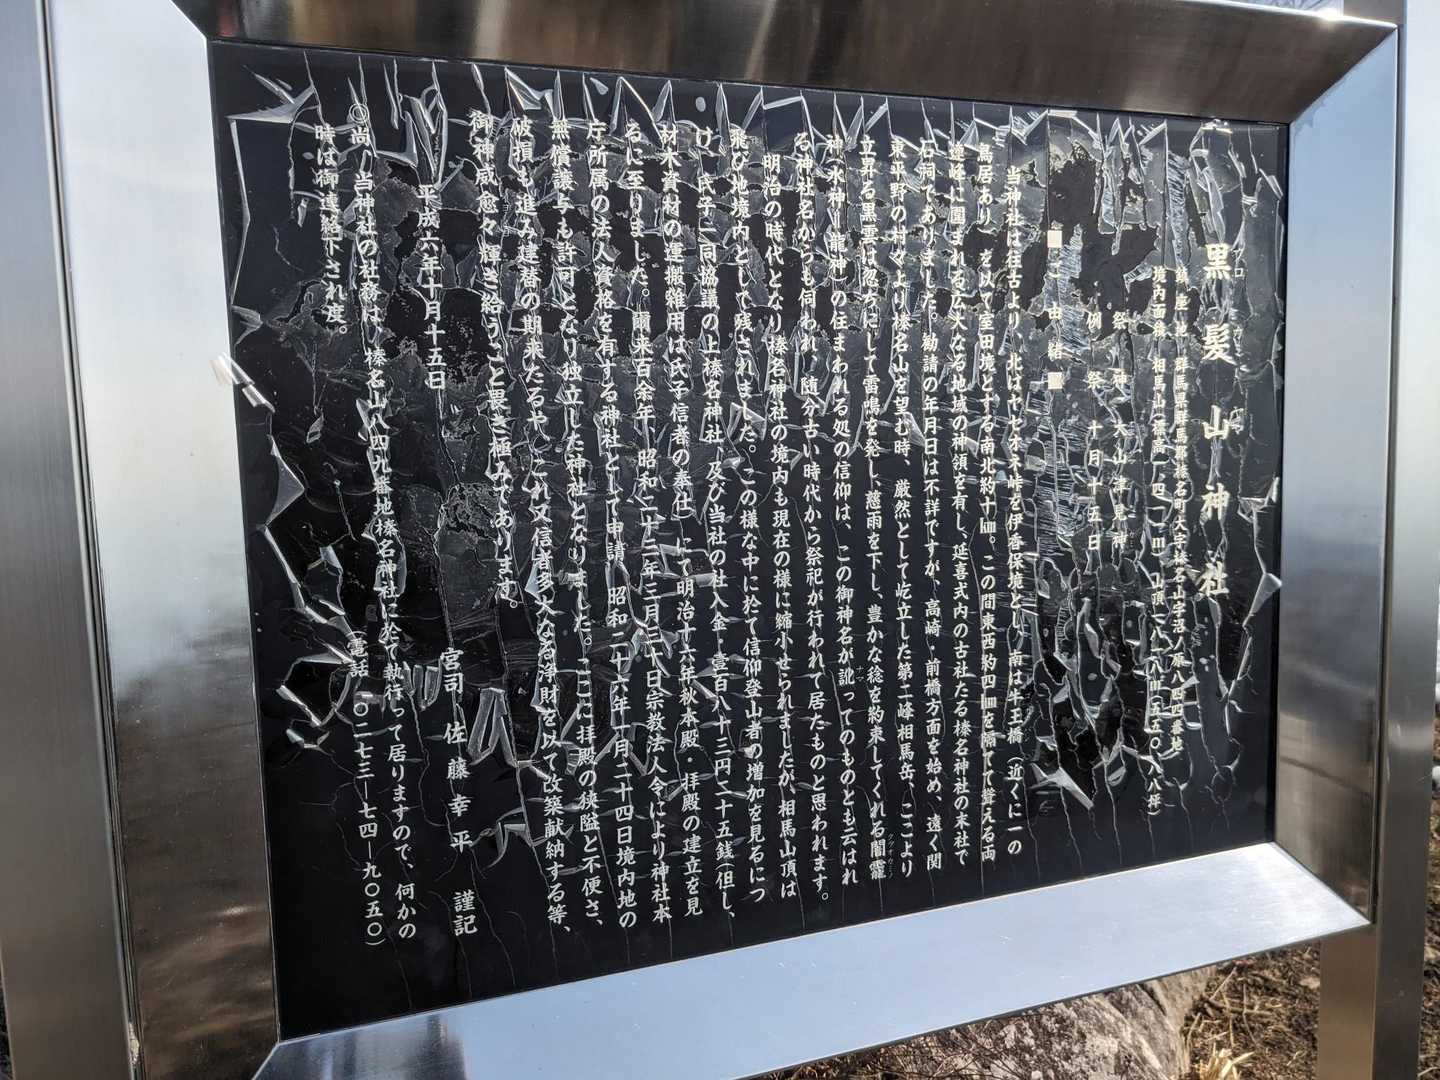 黒髪山神社
鎮座地 群馬県群馬郡榛名町大字榛名山字沼ノ原八四四番地
境内面積 相馬山(標高一四一一m)山頂二八一八m²(八五〇・八八坪)
祭神 大山津見神
例祭 十月十五日
■ご由緒■
当神社は往古より、北はヤセオネ峠を伊香保境とし、南は牛王橋(近くに一の
鳥居あり)を以て室田境とする南北約十km。この間東西約四kmを隔てて聳える両
連峰に囲まれる広大なる地域の神領を有し、延喜式内の古社たる榛名神社の末社で
石祠でありました。勧請の年月日は不詳ですが、高崎・前橋方面を始め、遠く関
東平野の村々より榛名山を望む時、厳然として屹立した第二峰相馬岳、ここより
立昇る黒雲は忽ちにして雷鳴を発し、慈雨を下し、豊かな稔を約束してくれる闇龗
神(水神・龍神)の住まわれる処の信仰は、この御神名が訛ってのものとも云はれ
る神社名からも伺われ、随分古い時代から祭祀が行われて居たものと思われます。
明治の時代となり榛名神社の境内も現在の様に縮小せられましたが、相馬山頂は
飛び地境内として残されました。この様な中に於て信仰登山者の増加を見るにつ
け、氏子一同協議の上榛名神社、及び当社の社入金、壹百八十三円二十五銭(但し、
材木資材の運搬雑用は氏子信者の奉仕)にて明治十六年秋本殿・拝殿の建立を見
るに至りました。爾来百余年、昭和二十三年三月三十日宗教法人令により神社本
庁所属の法人資格を有する神社として申請、昭和二十六年一月二十四日境内地の
無償譲与も許可となり独立した神社となりました。ここに拝殿の狭隘と不便さ、
破損も進み建替の期来たるや、これ又信者多大なる浄財を以て改築献納する等、
御神威愈々輝き給うこと畏き極みであります。
宮司 佐藤幸平 謹記
平成六年十月十五日
◎尚、当神社の社務は、榛名山八四九番地榛名神社に於て執行って居りますので、何かの
時は御連絡下され度。 (電話 〇二七三―七四―九〇五〇)